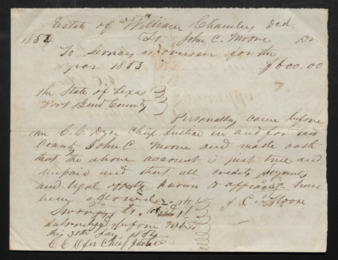 Estate of William Chambers Decd
1854 To John C. Moore Dr
To Services as overseer for the
year 1853 $600.00
The State of Texas
Fort Bend County
Personally came before
me C. C. Dyer Chief Justice in and for said
County John C. Moore and made oath
that the above account is just true and
unpaid and that all credits
and legal offsets known to affiant have
been allowed J. C. Moore
Sworn to and
Subscribed before
C. C. Dyer Chief Justice